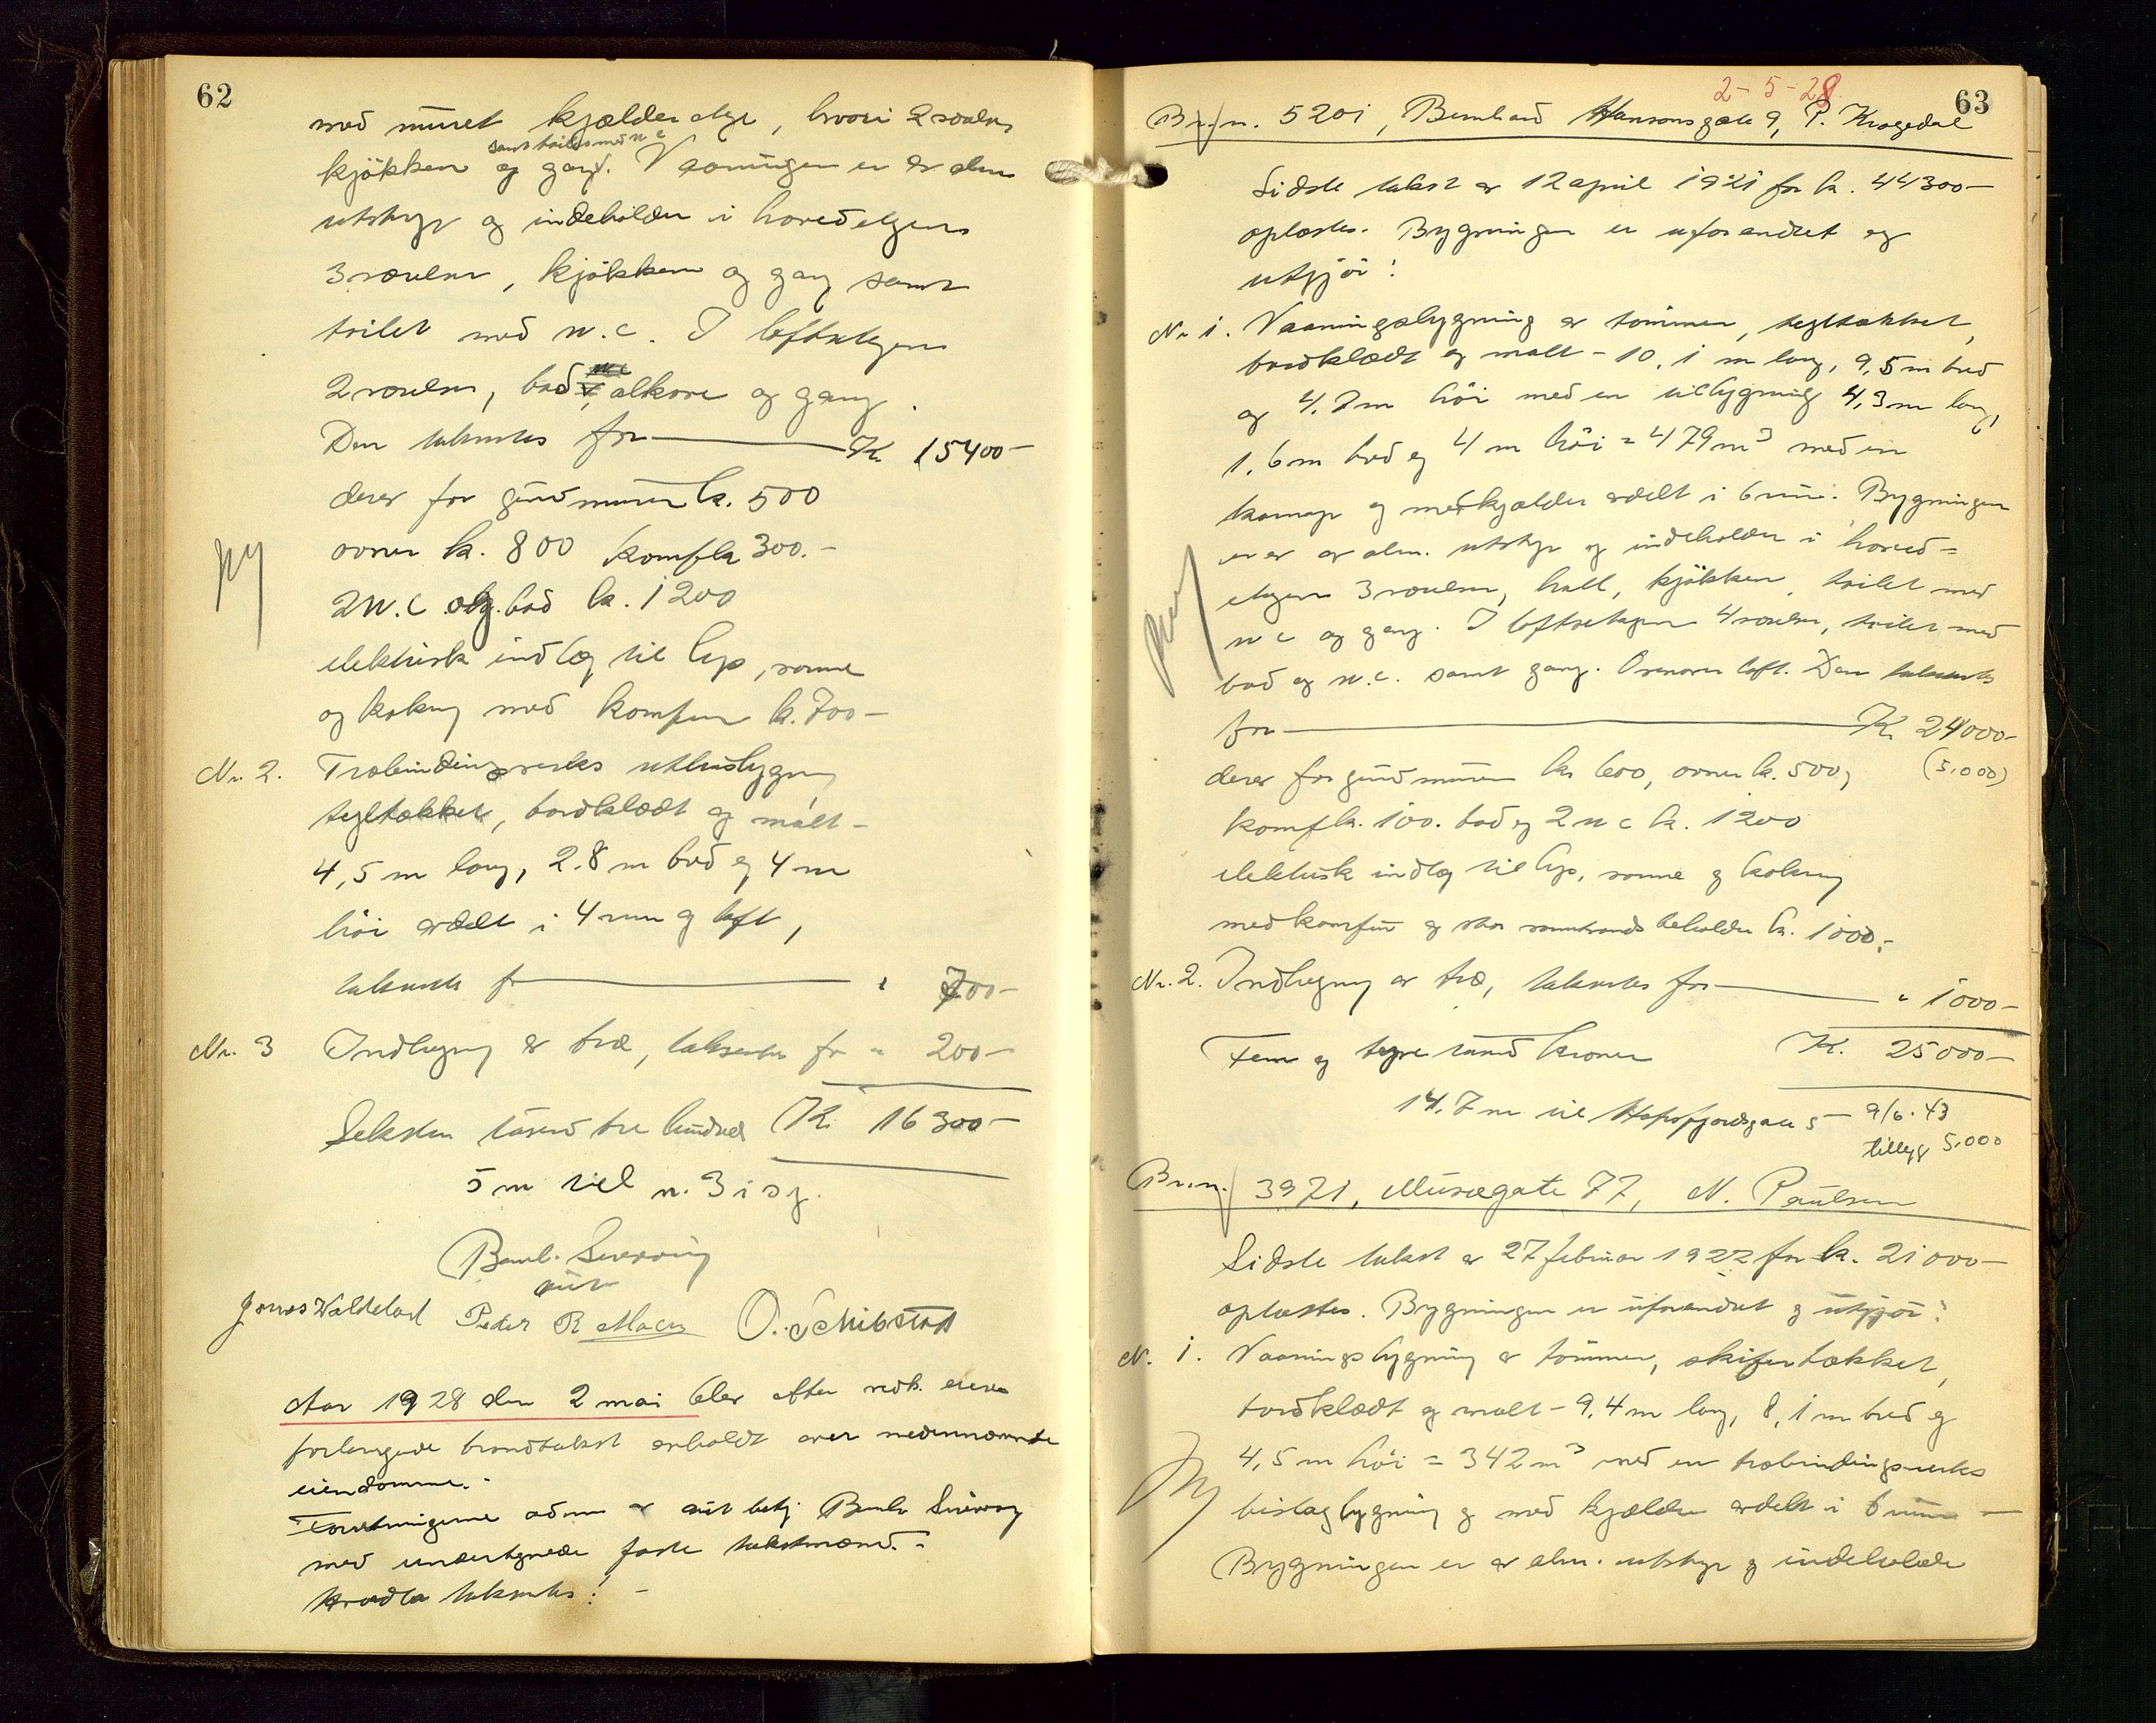 62
med muret kjælderetge, hvori 2 værelser
samt toilet med w c
kjøkken og gang. Vaaningen er av alm
utstyr og indeholder i hovedetgen
3 værelser, kjøkken og gang samt
toilet med w.c. I loftsetgen
2 værelser, bad, alkove og gang.
Den takseres for Kr. 15400-
derav for grundmuren kr. 500
ovner kr. 800 komf kr 300.-
2 W.C og bad kr. 1200
elektrisk indlæg til lys, varme
og kokning med komfur kr. 700-
Nr. 2. Træbindingsverks uthusbygning
tegltækket, bordklædt og malt-
4,5 m lang, 2.8 m bred og 4 m
høi avdelt i 4 rum og loft,
takseres for " 700-
Nr. 3 Indhegning av træ, takseres for " 200-
Seksten tusend tre hundred Kr. 16300-
5 m til nr. 3 i sg.
Bernh. Severin
aut
Jonas Waldeland Peder R Moen O. Schibstad
Aar 1928 den 2 mai blev efter vedk. eieres
forlangende brandtakst avholdt over nedennævnte
eiendomme.-
Forretningerne adm av aut betj. Bernh Severin
med undertegnede faste takstmænd.-
Hvorda takseres! -
63
2-5-28
Br. nr. 5201, Bernhard Hansonsgate 9, P. Kragedal
Sidste takst av 12 april 1921 for kr. 44300-
oplæstes. Bygningen er uforandret og
utgjør:
Nr 1. Vaaningsbygning av tømmer, tegltækket,
bordklædt og malt - 10,1 m lang, 9,5 m bred
og 4.7 m høi med en utbygning 4,3 m lang,
1.6 m bred og 4 m høi = 479 m³ med en
karnap og med kjælder avdelt i 6 rum. Bygningen
er av alm. utstyr og indeholder i hoved=
etgen 3 værelser, hall, kjøkken, toilet med
w c og gang. I loftsetagen 4 værelser, toilet med
bad og w.c. samt gang. Ovenover loft. Den takseres
for Kr. 24000-
derav for grundmuren kr 600, ovner kr. 500, (5.000)
komf kr. 100. bad og 2 w c kr. 1200
elektrisk indlæg til lys, varme og kokning
med komfur og stor varmtvands beholder kr. 1000.-
Nr. 2. Indhegning av træ, takseres for " 1000-
Fem og tyve tusend kroner Kr. 25000-
14.7 m til Hafrsfjordsgate 5 - 9/6. 43
tillegg 5.000
Br. nr. 3971, Musegate 77, N. Paulsen
Sidste takst av 27 februar 1922 for kr. 21000-
oplæstes. Bygningen er uforandret og utgjør:
Nr. 1. Vaaningsbygning av tømmer, skifertækket,
bordklædt og malt - 9,4 m lang, 8,1 m bred og
4,5 m høi = 342 m³ med en træbindingsverks
bislagbygning og med kjælder avdelt i 6 rum -
Bygningen er av alm. utstyr og indeholder